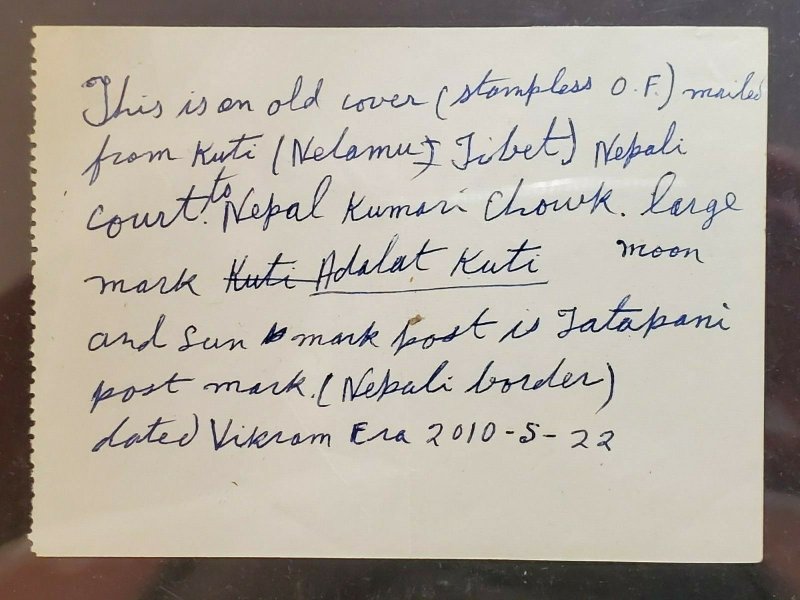 This is an old cover (stampless O.F.) mailed
from Kuti (Nelamu, Tibet) Nepali
court. to Nepal Kumari Chowk. large
mark Kuti Adalat Kuti moon
and sun mark post is Tatapani
post mark. (Nepali border)
dated Vikram Era 2010-5-22